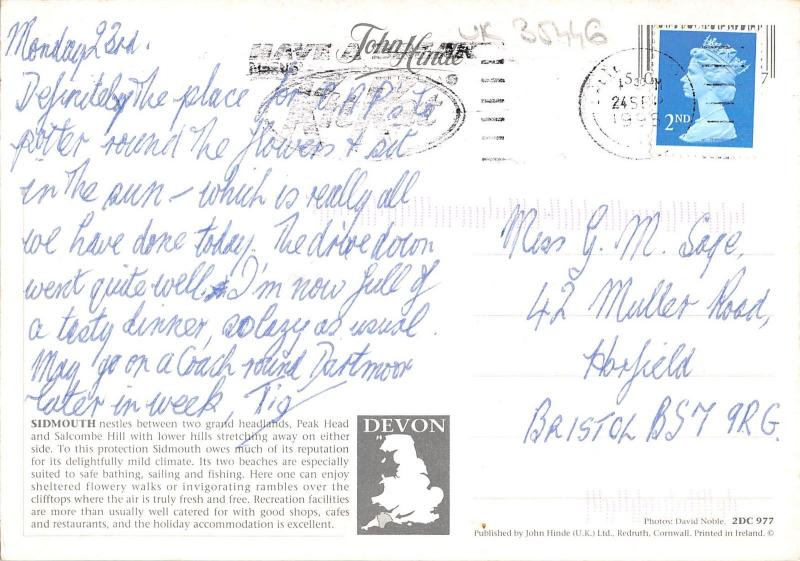 Monday 23rd.
Definitely the place for O.A.P.s to
potter round the flowers & sit
in the sun – which is really all
we have done today. The drive down
went quite well. I'm now full of
a tasty dinner, so lazy as usual.
May go on a Coach round Dartmoor
later in week, Tig
John
Hinde
UK 35446
24 SEP
2ND
7
Miss G. M. Sage,
42 Muller Road,
Horfield
BRISTOL BS7 9RG.
SIDMOUTH nestles between two grand headlands, Peak Head
and Salcombe Hill with lower hills stretching away on either
side. To this protection Sidmouth owes much of its reputation
for its delightfully mild climate. Its two beaches are especially
suited to safe bathing, sailing and fishing. Here one can enjoy
sheltered flowery walks or invigorating rambles over the
clifftops where the air is truly fresh and free. Recreation facilities
are more than usually well catered for with good shops, cafes
and restaurants, and the holiday accommodation is excellent.
DEVON
Photos: David Noble. 2DC 977
Published by John Hinde (U.K.) Ltd., Redruth, Cornwall. Printed in Ireland. ©